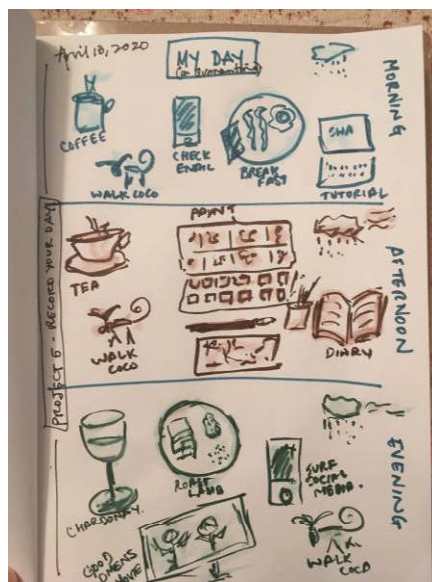 April 18, 2020
MY DAY
(in Quarantine)
MORNING
COFFEE
CHECK
EMAIL
BREAK
FAST
SWA
TUTORIAL
WALK COCO
PROJECT 5 - RECORD YOUR DAY
PAINT
AFTERNOON
TEA
WALK
COCO
DIARY
EVENING
CHARDONNAY
ROAST
LAMB
SURF
SOCIAL
MEDIA.
GOOD
OMENS
MOVIE
WALK
COCO